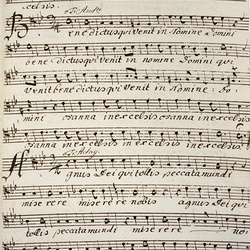 celsis
Benedictus qui venit in Nomine Domini
benedictus qui venit in nomine Domini qui
venit benedictus qui venit in Nomine Do
mini osanna in excelsis osanna in excelsis
osanna in excelsis osanna in excelsis
Agnus Dei qui tollis peccata mundi
miserere miserere nobis agnus Dei qui
tollis peccata mundi miserere nobis